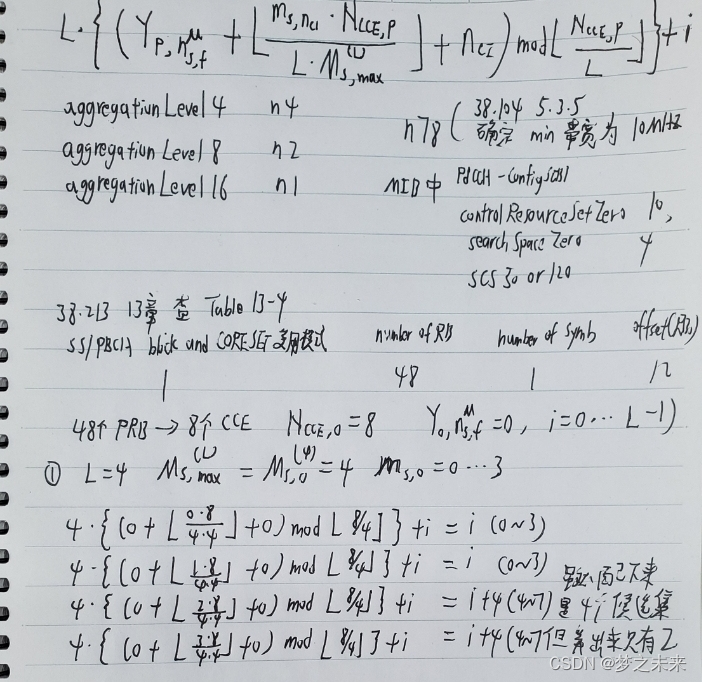 L·{(Y_{p,n^μ_{s,f}} + ⌊m_{s,n_CI}·N_{CCE,p} / L·M^{(L)}_{s,max}⌋ + n_{CI}) mod ⌊N_{CCE,p}/L⌋} + i
aggregation Level 4 n4
aggregation Level 8 n2
aggregation Level 16 n1
n78 ( 38.104 5.3.5
确定 min 带宽为 10MHz
MIB中 PdCCH-ConfigSIB1
controlResourceSetZero 10,
search Space Zero 4
SCS 30 or 120
38.213 13章 查 Table 13-4
SS/PBCH block and CORESET 复用模式 number of RB number of Symb offset(RB)
1 48 1 12
48个 PRB → 8个 CCE N_{CCE,0}=8 Y_{0,n^μ_{s,f}}=0, i=0··· L-1)
① L=4 M^{(L)}_{s,max} = M^{(4)}_{s,0} = 4 m_{s,0} = 0 ··· 3
4·{(0+⌊0·8/4·4⌋+0) mod ⌊8/4⌋}+i = i (0~3)
4·{(0+⌊1·8/4·4⌋+0) mod ⌊8/4⌋}+i = i (0~3)
4·{(0+⌊2·8/4·4⌋+0) mod ⌊8/4⌋}+i = i+4 (4~7)
是4个候选集
4·{(0+⌊3·8/4·4⌋+0) mod ⌊8/4⌋}+i = i+4 (4~7) 但算出来只有2
CSDN @梦之未来